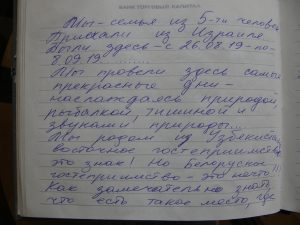 БАНК ТОРГОВЫЙ КАПИТАЛ
Мы - семья из 5-ти человек
Приехали из Израиля.
Были здесь - с 26.08.19 - по
8.09.19
Мы провели здесь самые
прекрасные дни -
наслаждаясь природой,
рыбалкой, тишиной и
звуками природы...
Мы родом из Узбекиста
восточное гостеприимство
это знак! Но Белорусское
гостеприимство - это нечто!!!
Как замечательно знать,
что есть такое место, где